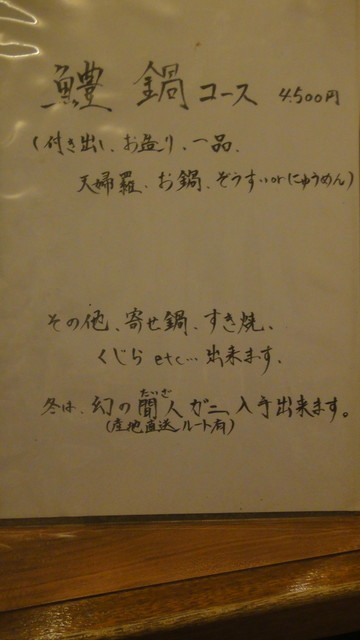 鱧 鍋 コース 4.500円
(付き出し、お造り、一品、
天婦羅、お鍋、ぞうすいorにゅうめん)
その他、寄せ鍋、すき焼、
くじら etc…出来ます、
たいざ
冬は、幻の間人ガニ入手出来ます。
(産地直送ルート有)